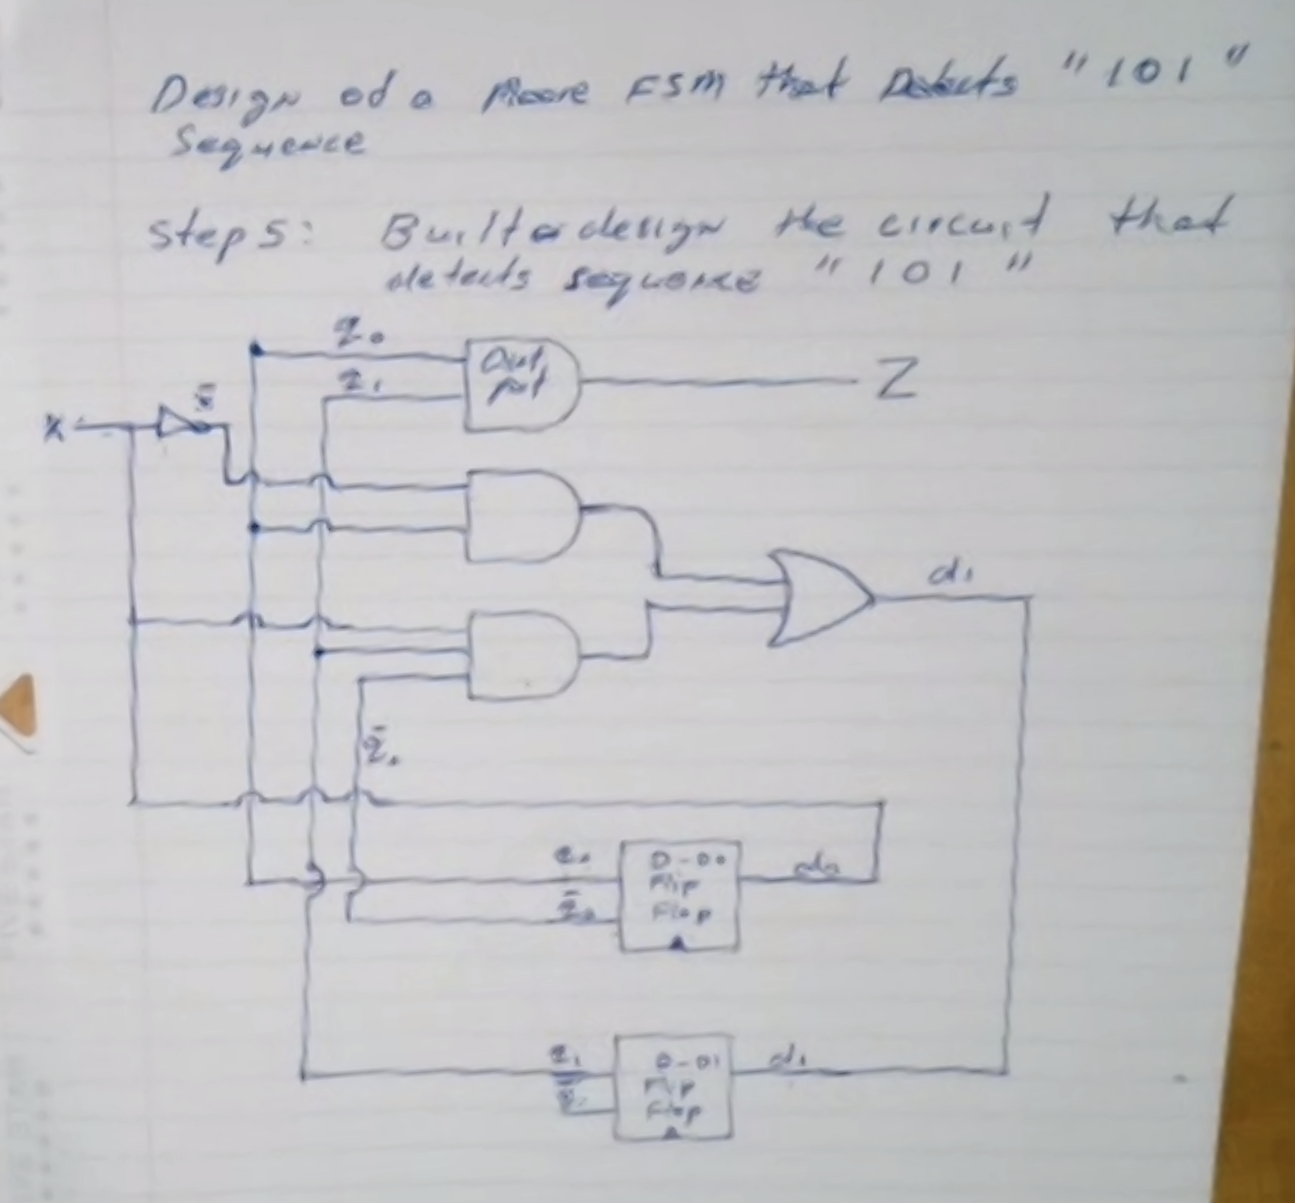 Design od a Moore FSM that Detects "101"
Sequence
Step 5: Built a design the circuit that
detects sequence "101"
q₀
Out
put
Z
q₁
x̄
X
d₁
q̄₀
q₀
D-D0
Flip
Flop
d₀
q̄₀
q₁
D-D1
Flip
Flop
d₁